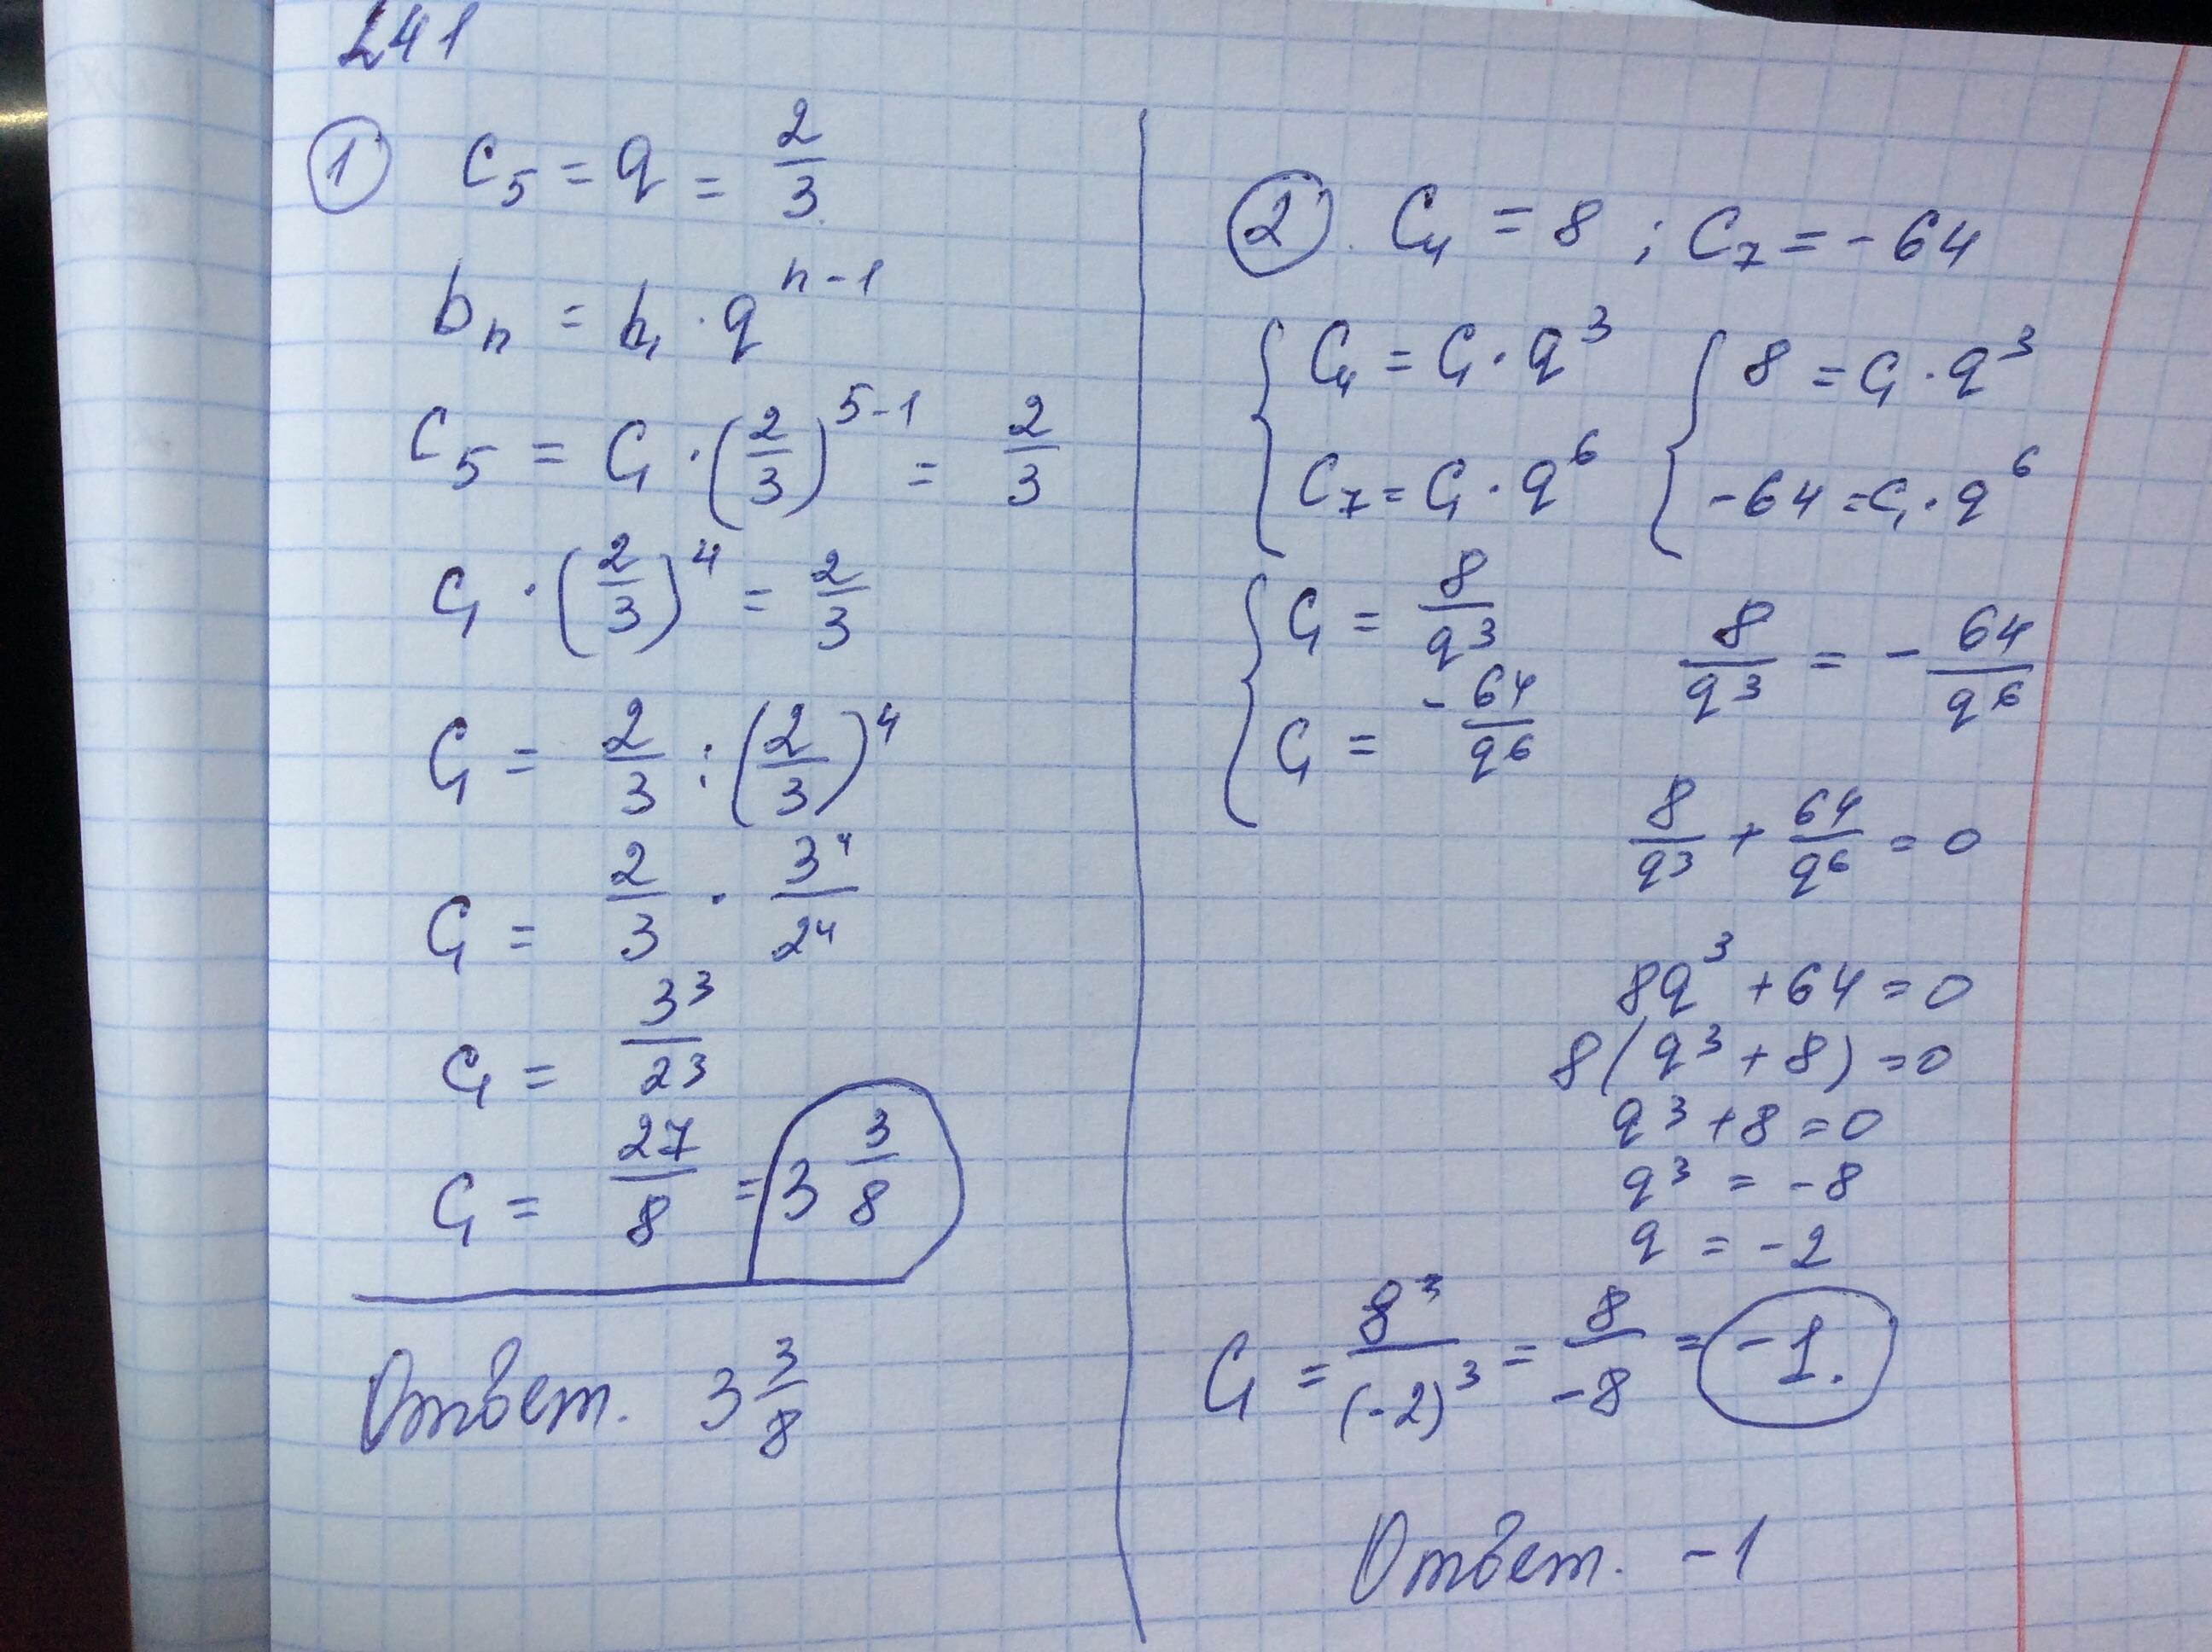 241
① c₅ = q = 2/3
bₙ = b₁ · qⁿ⁻¹
c₅ = c₁ · (2/3)⁵⁻¹ = 2/3
c₁ · (2/3)⁴ = 2/3
c₁ = 2/3 : (2/3)⁴
c₁ = 2/3 · 3⁴/2⁴
c₁ = 3³/2³
c₁ = 27/8 = 3 3/8
Ответ. 3 3/8
② . c₄ = 8 ; c₇ = -64
{ c₄ = c₁ · q³ { 8 = c₁ · q³
c₇ = c₁ · q⁶ -64 = c₁ · q⁶
{ c₁ = 8/q³ 8/q³ = - 64/q⁶
c₁ = - 64/q⁶
8/q³ + 64/q⁶ = 0
8q³ + 64 = 0
8(q³ + 8) = 0
q³ + 8 = 0
q³ = -8
q = -2
c₁ = 8³/(-2)³ = 8/-8 = -1.
Ответ. -1